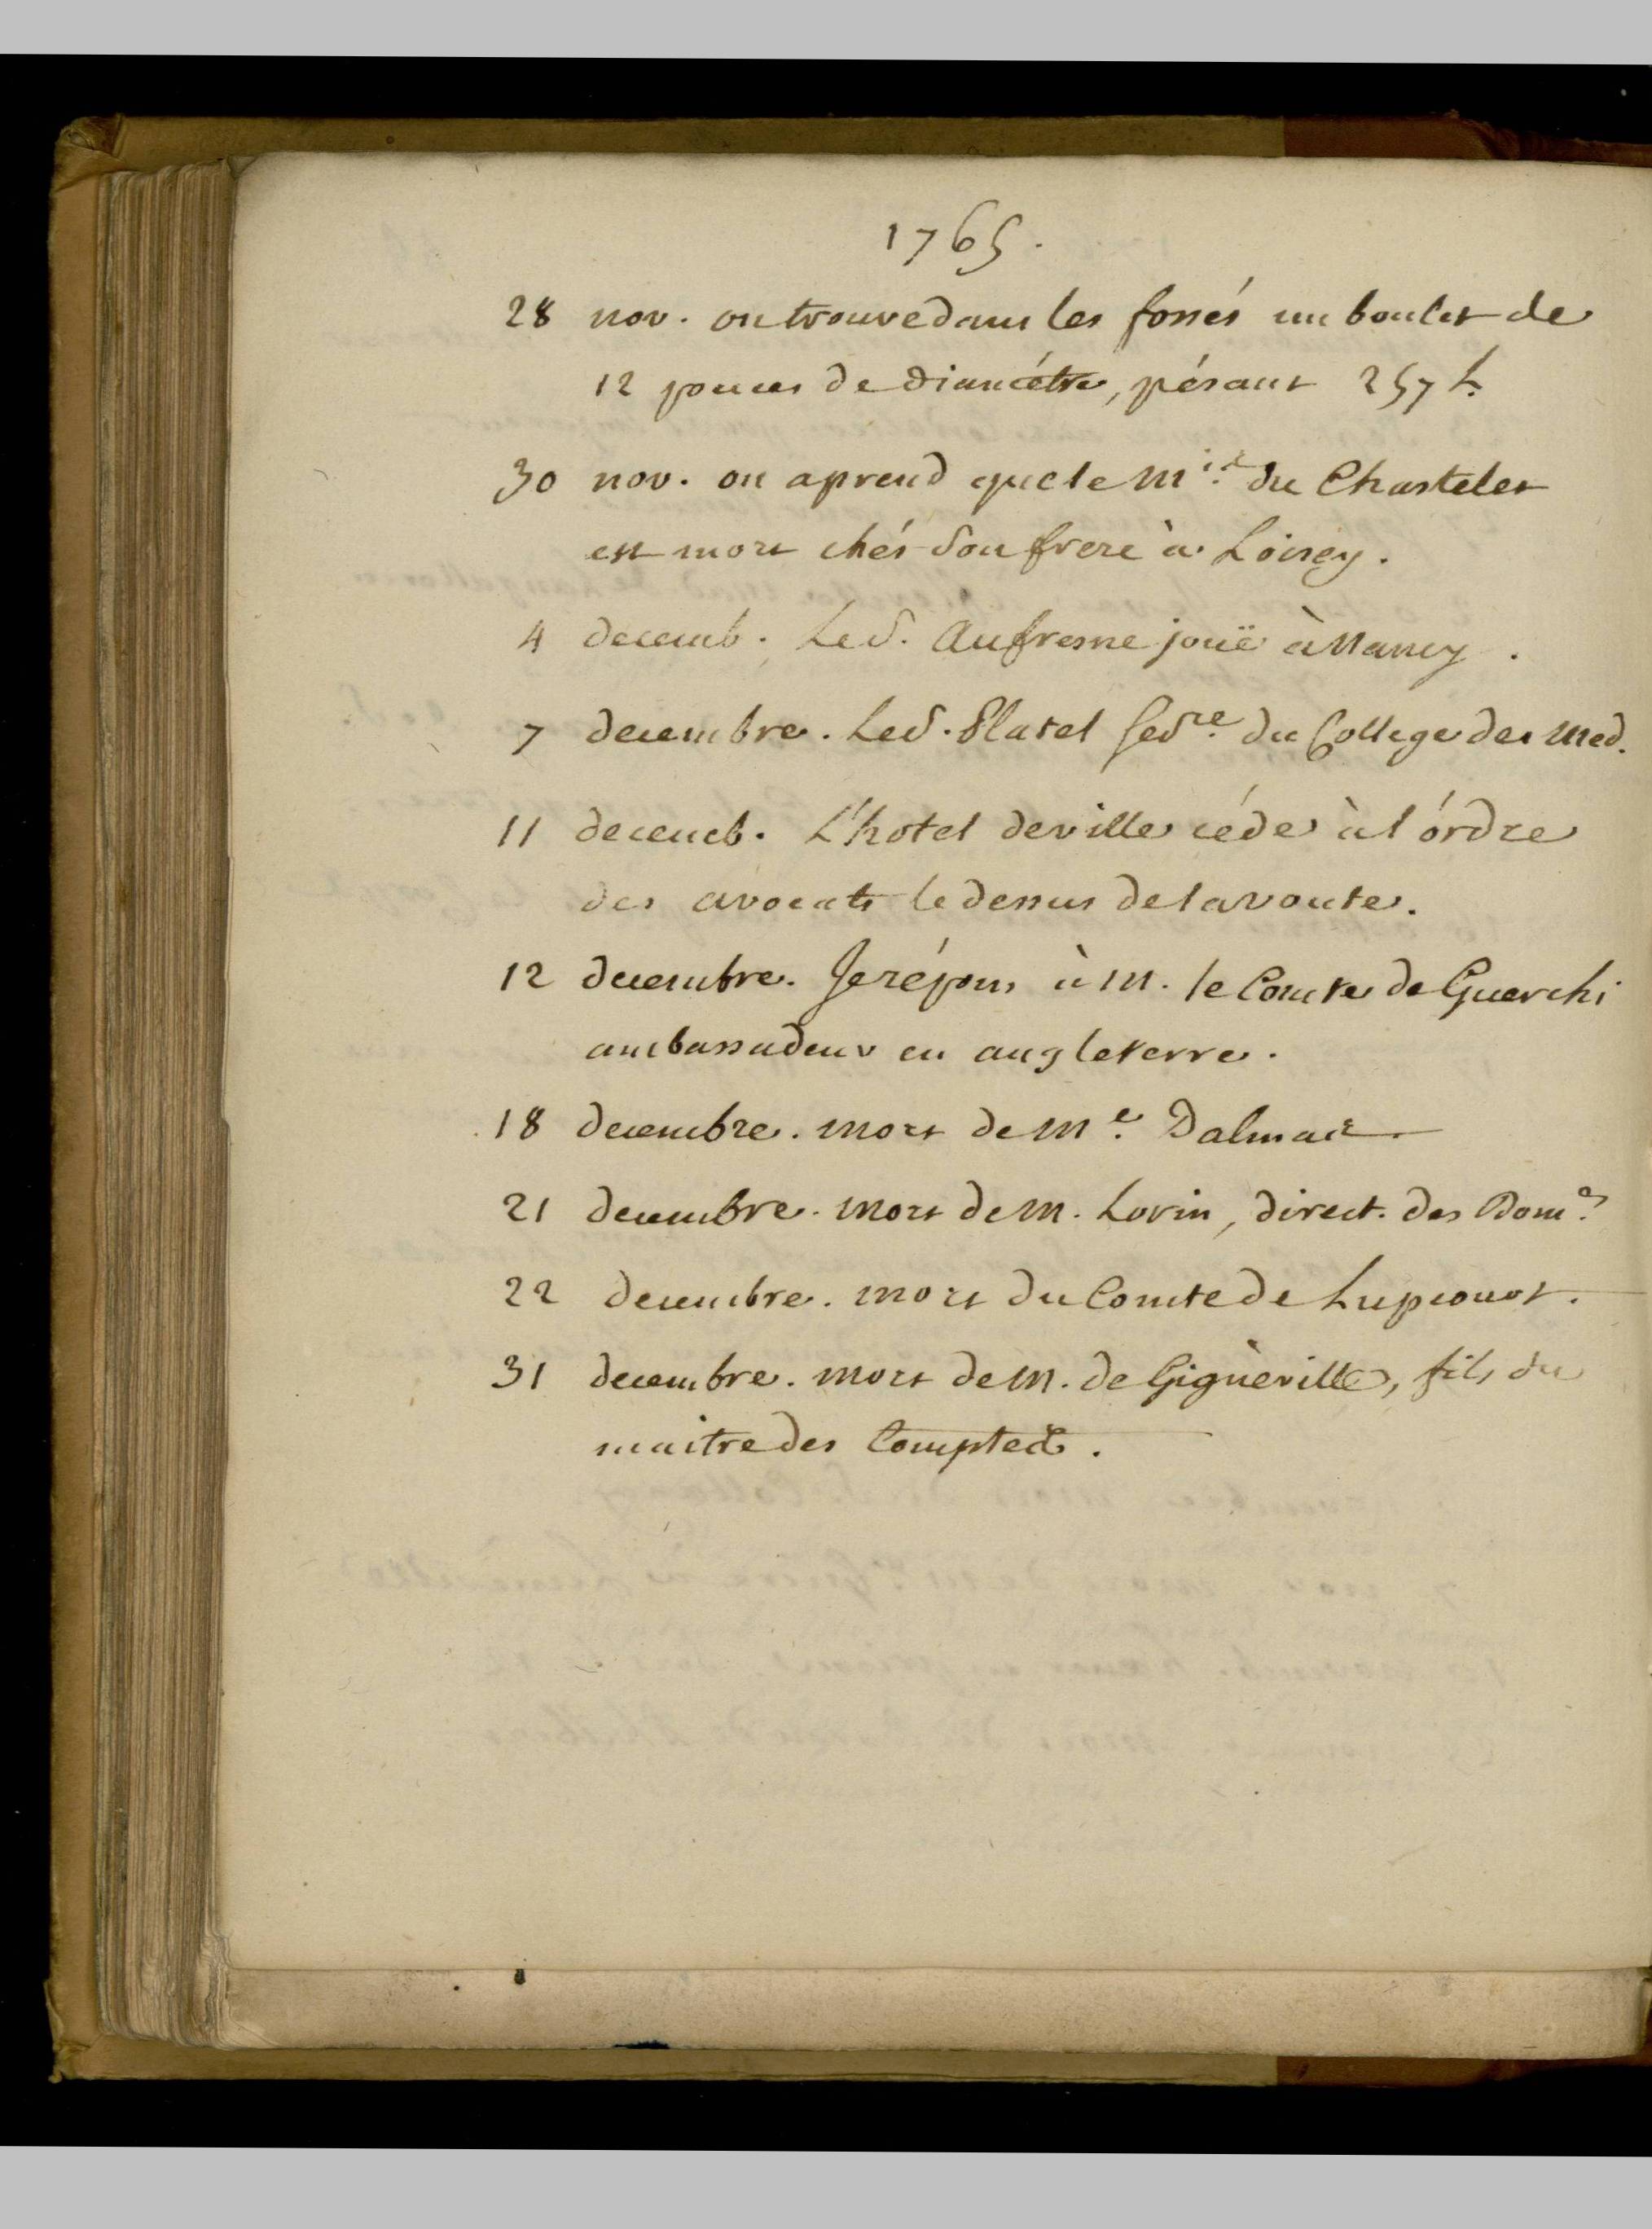 1765.
28 nov. on trouve dans les fossés un boulet de
12 pouces de diamétre, pésant 257 L.
30 nov. on aprend que le M.is du Chastelet
est mort chés son frere à Loisey.
4 decemb. Le S. Aufresne jouë à Nancy.
7 decembre. Le S. Platel Secre. du College des Med.
11 decemb. L'hotel de ville céde à l'órdre
des avocats le dessus de la voute.
12 decembre. Je répons à M. le Comte de Guerchi
ambassadeur en angleterre.
18 decembre. mort de Me. Dalmas
21 decembre. mort de M. Lorin, direct. des Dom.es
22 decembre. mort du Comte de Lupcourt.
31 decembre. mort de M. de Gignèville, fils du
maitre des Comptes.